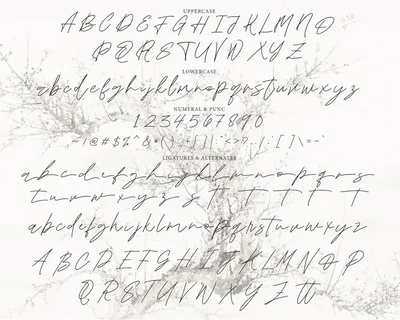 UPPERCASE
A B C D E F G H I J K L M N O
P Q R S T U V W X Y Z
LOWERCASE
a b c d e f g h i j k l m n o p q r s t u v w x y z
NUMERAL & PUNC
1 2 3 4 5 6 7 8 9 0
LIGATURES & ALTERNATES
a b c d e f g h i j k l m n o p q r s
t u v w x y z
a b c d e f g h i j k l m n o p q r s t u v w x y z
A B C D E F G H I J K L M N O P
Q R S T U V W X Y Z tt